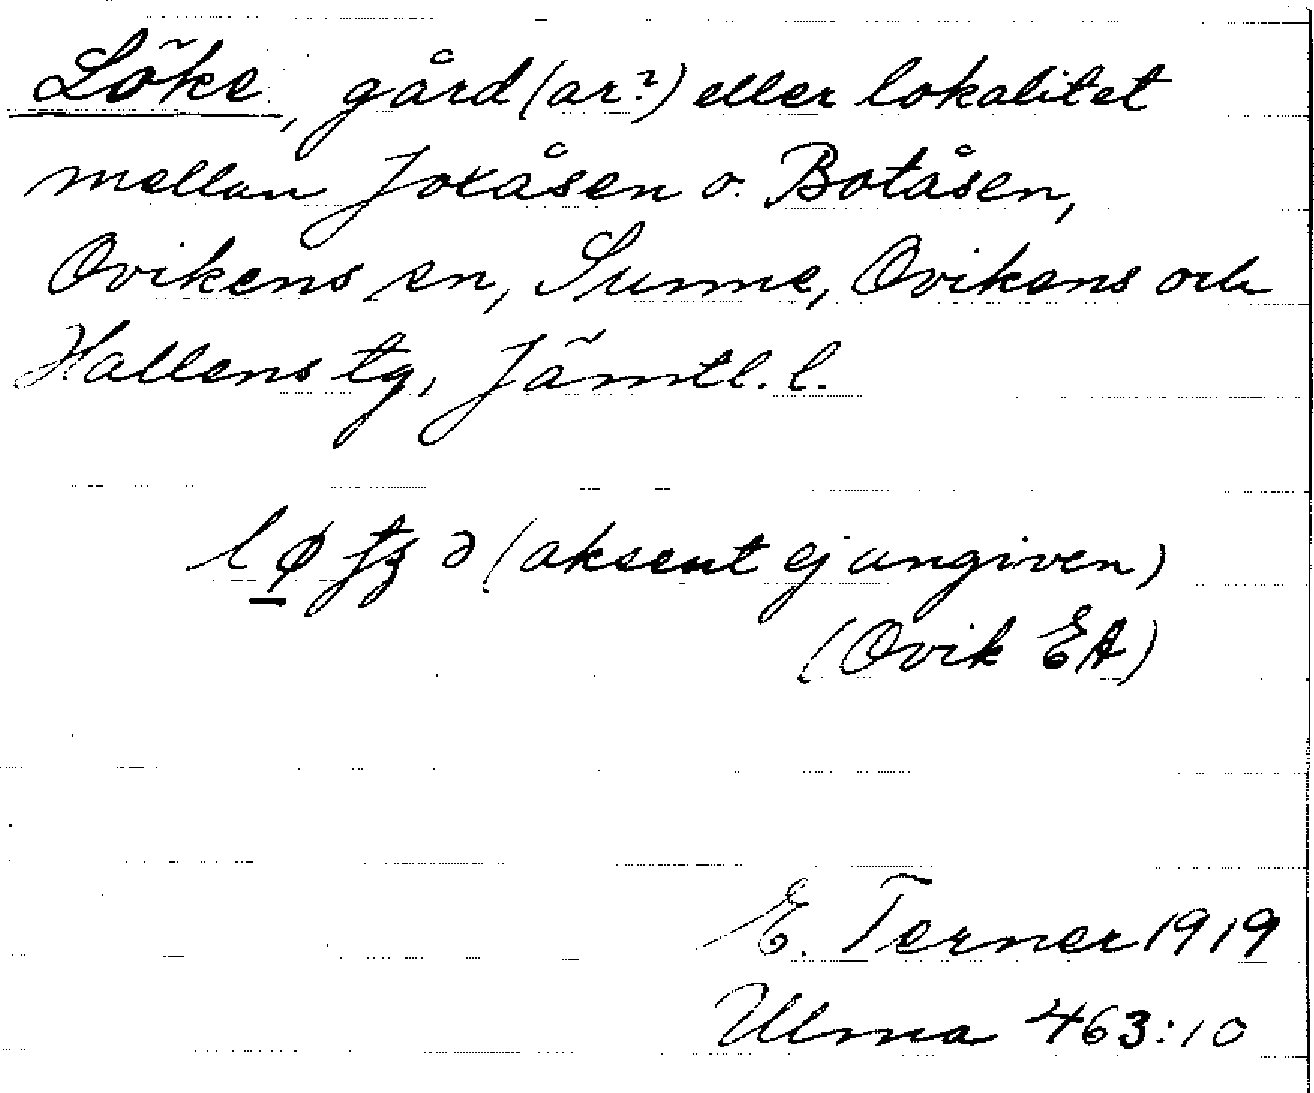 Löke, gård(ar?) eller lokalitet
mellan Joxåsen o. Botåsen,
Ovikens sn, Sunne, Ovikens och
Hallens tg, Jämtl. l.
(aksent ej angiven)
(Ovik EA)
E. Terner 1919
Ulma 463:10